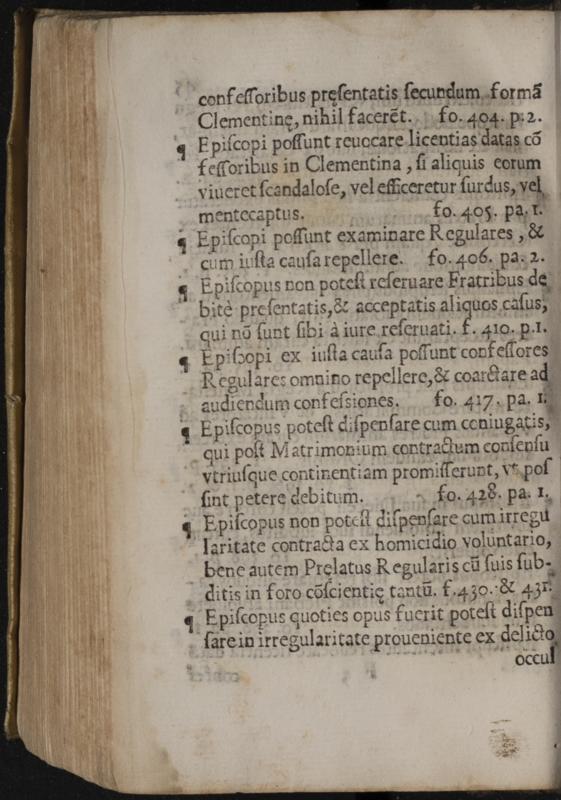 confessoribus pręsentatis secundum formã
Clementinę, nihil facerẽt. fo. 404. p. 2.
¶ Episcopi possunt reuocare licentias datas cõ
fessoribus in Clementina, si aliquis eorum
viueret scandalose, vel efficeretur surdus, vel
mentecaptus. fo. 405. pa. 1.
¶ Episcopi possunt examinare Regulares, &
cum iusta causa repellere. fo. 406. pa. 2.
¶ Episcopus non potest reseruare Fratribus de
bitè presentatis, & acceptatis aliquos casus,
qui nõ sunt sibi à iure reseruati. f. 410. p. 1.
¶ Episcopi ex iusta causa possunt confessores
Regulares omnino repellere, & coarctare ad
audiendum confessiones. fo. 417. pa. 1.
¶ Episcopus potest dispensare cum coniugatis,
qui post Matrimonium contractum consensu
vtriusque continentiam promisserunt, vt pos
sint petere debitum. fo. 428. pa. 1.
¶ Episcopus non potest dispensare cum irregu
laritate contracta ex homicidio voluntario,
bene autem Pręlatus Regularis cũ suis sub-
ditis in foro cõscientię tantũ. f. 430. & 431.
¶ Episcopus quoties opus fuerit potest dispen
sare in irregularitate proueniente ex delicto
occul